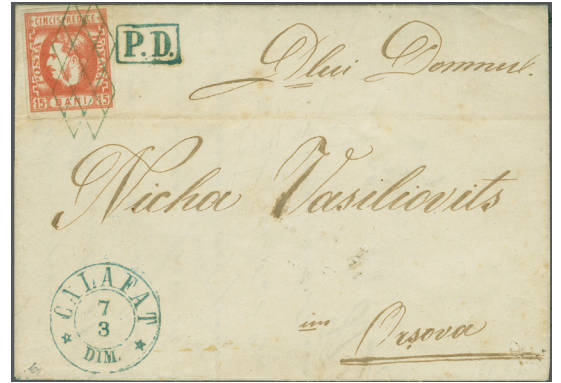 CINCI SPRE DECE
POSTA
15 BANI 15
P.D.
Dlui Domnul.
Nicha Vasiliovits
im
Orșova
CALAFAT
7
3
DIM.